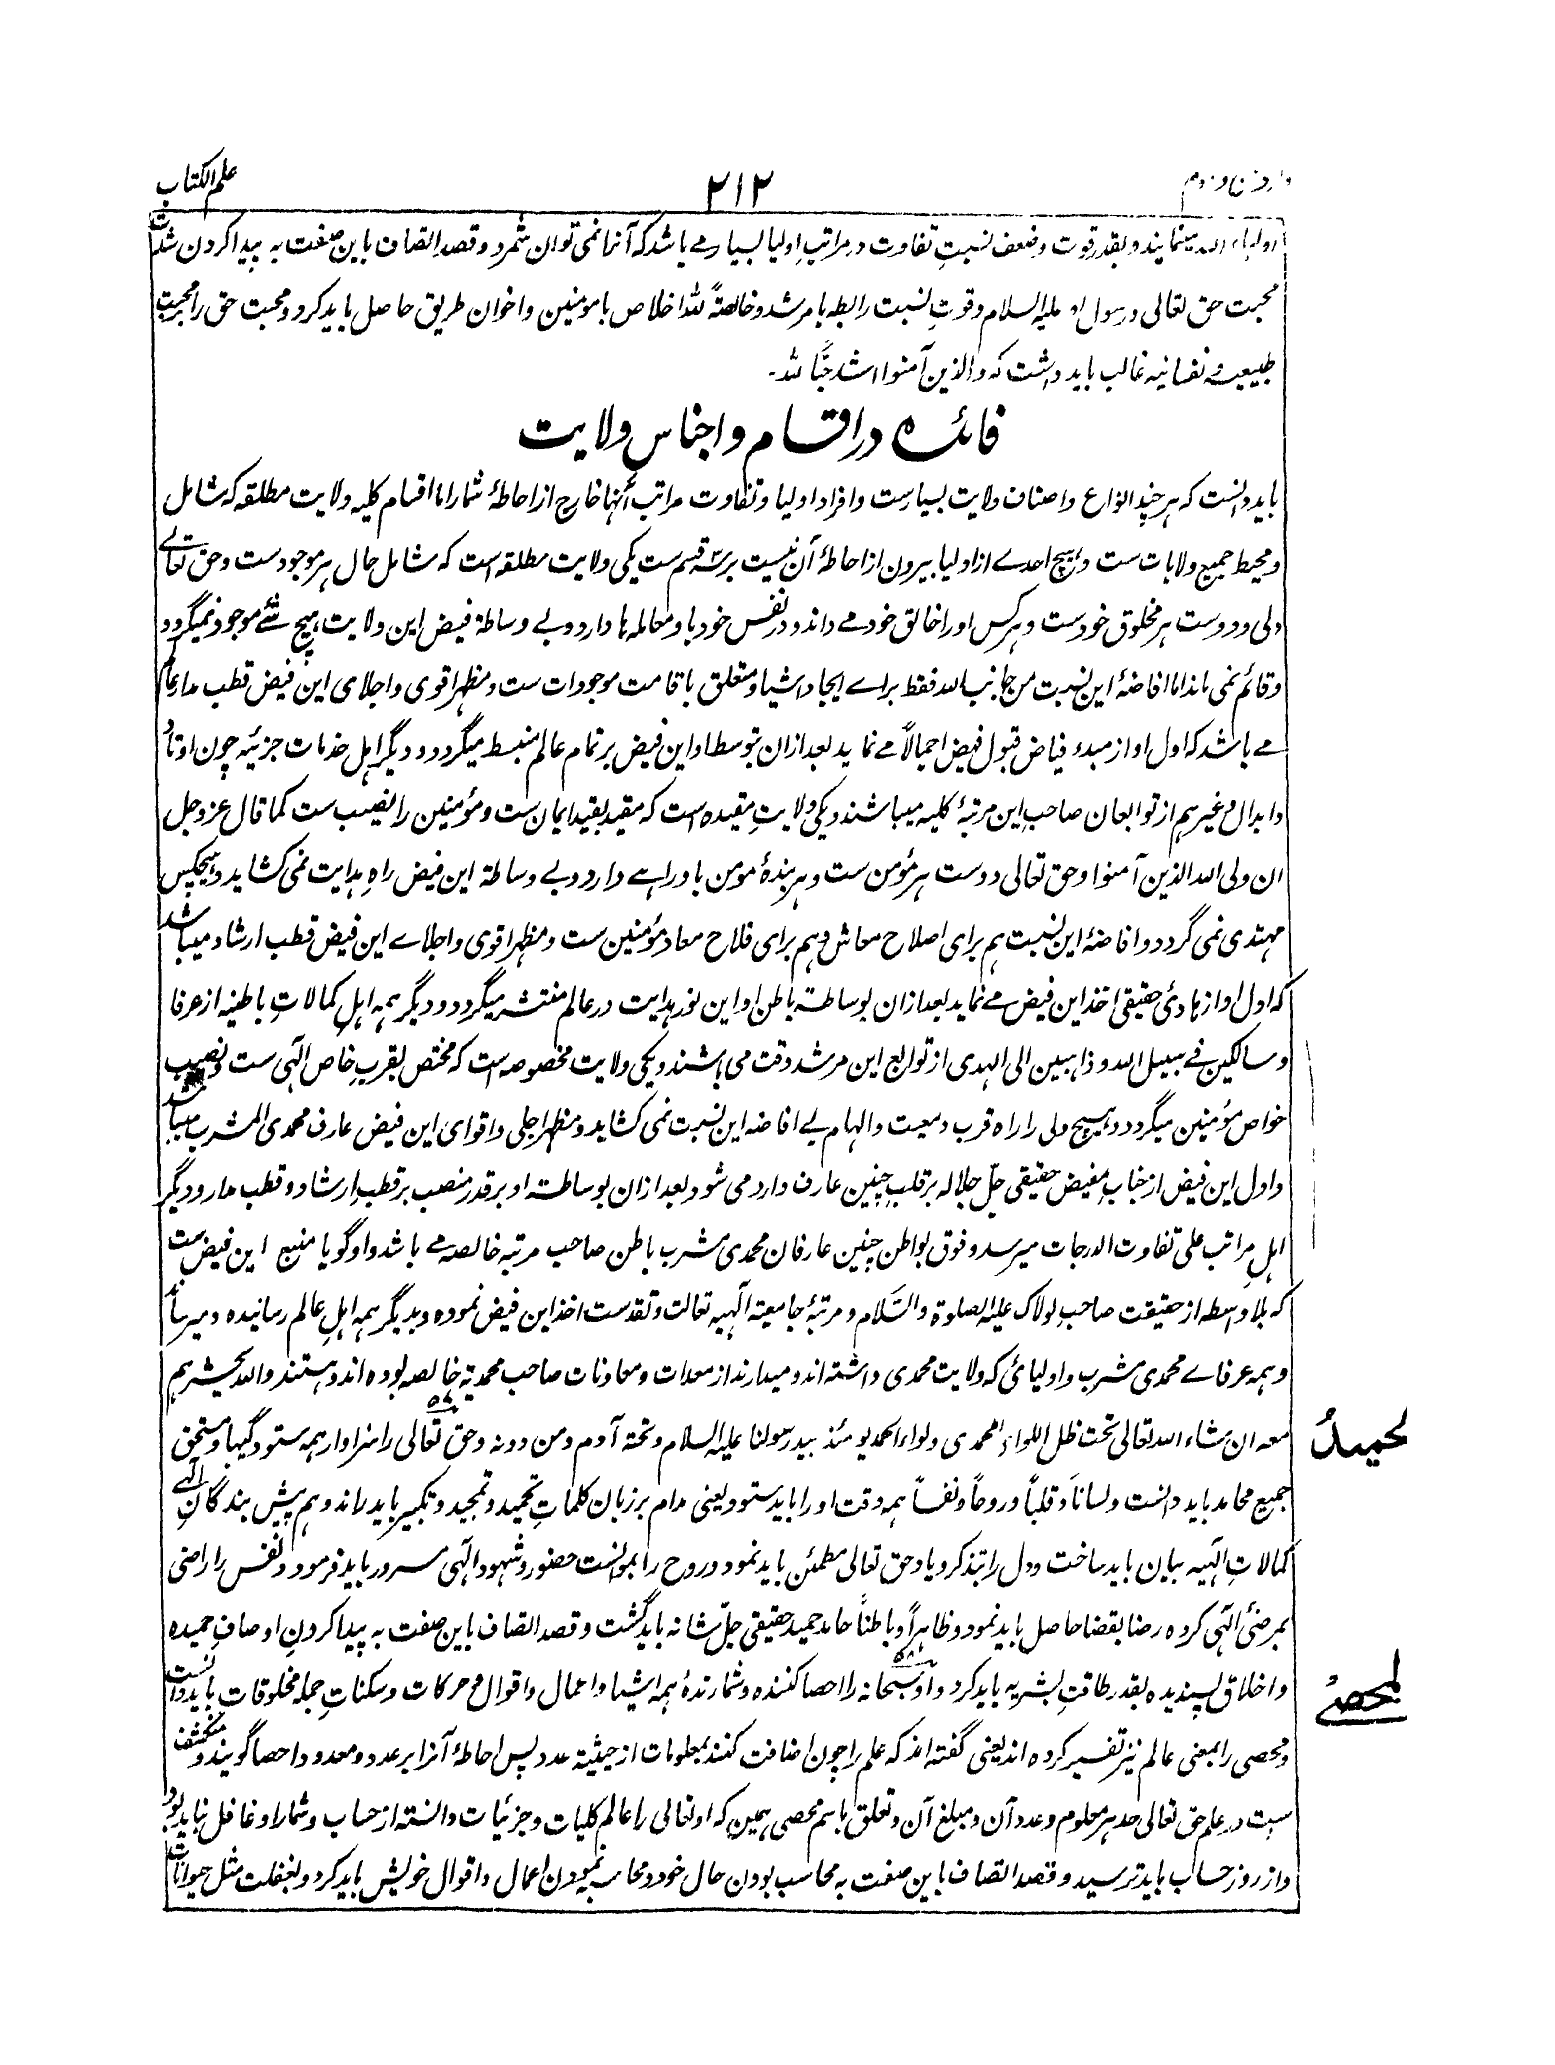 علم الکتاب
۲۱۲
اولیاء الله مینمایند و بقدر قوت و ضعف نسبت تفاوت در مراتبِ اولیا بسیار مے باشد که آنرا نمی توان شمرد و قصد اتصاف باین صفت به پیدا کردن شدت
محبت حق تعالی و رسول او علیه السلام و قوتِ نسبت رابطه با مرشد و خالصةً لله اخلاص با مومنین و اخوان طریق حاصل باید کرد و محبت حق را بر محبت
طبیعیه و نفسانیه غالب باید داشت که والذین آمنوا اشد حبًّا لله۔
فائدہ در اقسام و اجناسِ ولایت
باید دانست که هر چند انواع و اصناف ولایت بسیارست و افراد اولیا و تفاوت مراتب آنها خارج از احاطۂ شمار اما اقسام کلیه ولایت مطلقه که شامل
و محیط جمیع ولایات ست و هیچ احدے از اولیا بیرون از احاطۂ آن نیست بر سه قسم ست یکی ولایت مطلقه است که شامل حال هر موجود ست و حق تعالے
ولی و دوست هر مخلوق خودست و هر کس او را خالق خود مے داند و در نفس خود با او معامله ها دارد و بے وساطة فیض این ولایت هیچ شئے موجود نمیگردد
و قائم نمی ماند اما افاضۂ این نسبت من جانب الله فقط براے ایجاد اشیا و متعلق باقامت موجودات ست و مظهر اقوی و اجلای این فیض قطب مدار عالم
مے باشد که اول او از مبدء فیاض قبول فیض اجمالاً مے نماید بعد ازان بتوسط او این فیض بر تمام عالم منبسط میگردد و دیگر اهل خدمات جزئیه چون اوتاد
و ابدال و غیرهم از توابعان صاحبِ این مرتبۂ کلیه میباشند و یکی ولایتِ مقیده است که مقید بقید ایمان ست و مؤمنین را نصیب ست کما قال عز و جل
ان ولی الله الذین آمنوا و حق تعالی دوست هر مؤمن ست و هر بندۂ مومن باو راهے دارد و بے وساطة این فیض راهِ هدایت نمی کشاید و هیچکس
مهتدی نمی گردد و افاضۂ این نسبت هم برای اصلاح معاش و هم برای فلاح معاد مؤمنین ست و مظهر اقوی و اجلاے این فیض قطب ارشاد میباشد
که اول او از هادئ حقیقی اخذ این فیض مے نماید بعد ازان بوساطت باطن او این نور هدایت در عالم منتشر میگردد و دیگر همه اهلِ کمالاتِ باطنیه از عرفا
و سالکین فے سبیل الله و ذاهبین الی الهدی از توابع این مرشد وقت می باشند و یکی ولایت مخصوصه است که مختص بقربِ خاص الٓهی ست و نصیب
خواص مؤمنین میگردد و هیچ ولی را راه قرب و معیت و الهام بے افاضه این نسبت نمی کشاید و مظهر اجلی و اقوای این فیض عارف محمدی المشرب میباشد
و اول این فیض از جنابِ مفیض حقیقی جلّ جلاله بر قلبِ چنین عارف وارد می شود بعد ازان بوساطت او بر قدر منصب بر قطبِ ارشاد و قطب مدار و دیگر
اهلِ مراتب علی تفاوت الدرجات میرسد و فوق بواطن چنین عارفان محمدی مشرب باطن صاحب مرتبه خالصه مے باشد و او گویا منبع این فیض ست
که بلاواسطه از حقیقت صاحبِ لولاک علیه الصلوة والسّلام و مرتبۂ جامعیته الٓهیه تعالت و تقدست اخذ این فیض نموده و بدیگر همه اهلِ عالم رسانیده و میرساند
و همه عرفاے محمدی مشرب و اولیائی که ولایت محمدی داشته اند و میدارند از معدات و معاونات صاحب محمدیه خالصه بوده اند و هستند والله یحشرهم
معه ان شاء الله تعالی تحت ظل اللواء المحمدی و لواء الحمد یومئذ بید رسولنا علیه السلام و تحته آدم و من دونه و حق تعالی را سزاوار همه ستودگیها و مستحق
۵۷
الحمیدُ
جمیع محامد باید دانست و لساناً و قلباً و روحاً و نفساً همه وقت او را باید ستود یعنی مدام بر زبان کلماتِ تحمید و تمجید و تکبیر باید راند و هم پیش بندگانِ الٓهے
کمالاتِ الٓهیه بیان باید ساخت و دل را بتذکر و یاد حق تعالی مطمئن باید نمود و روح را بموانست حضور و شهود الٓهی مسرور باید فرمود و نفس را راضی
بمرضئ الٓهی کرده رضا بقضا حاصل باید نمود و ظاهراً و باطناً حامد حمید حقیقی جلّ شانه باید گشت و قصد اتصاف باین صفت به پیدا کردنِ اوصافِ حمیده
و اخلاق پسندیده بقدر طاقتِ بشریه باید کرد و او سبحانه را احصا کننده و شمارندۂ همه اشیا و اعمال و اقوال و حرکات و سکناتِ جمله مخلوقات باید دانست
۵۸
المحصی
و محصی را بمعنی عالم نیز تفسیر کرده اند یعنی گفته اند که علم را چون اضافت کنند بمعلومات از حیثیة عدد پس احاطۂ آنرا بر عدد و معدود احصا گویند و منکشف
ست در علم حق تعالی حد هر معلوم و عدد آن و مبلغ آن و تعلق باسم محصی همین که او تعالی را عالم کلیات و جزئیات دانسته از حساب و شمار او غافل نباید بود
و از روز حساب باید ترسید و قصد اتصاف باین صفت به محاسب بودن حال خود و محاسبه نمودن اعمال و اقوال خویش باید کرد و بغفلت مثل حیوانات